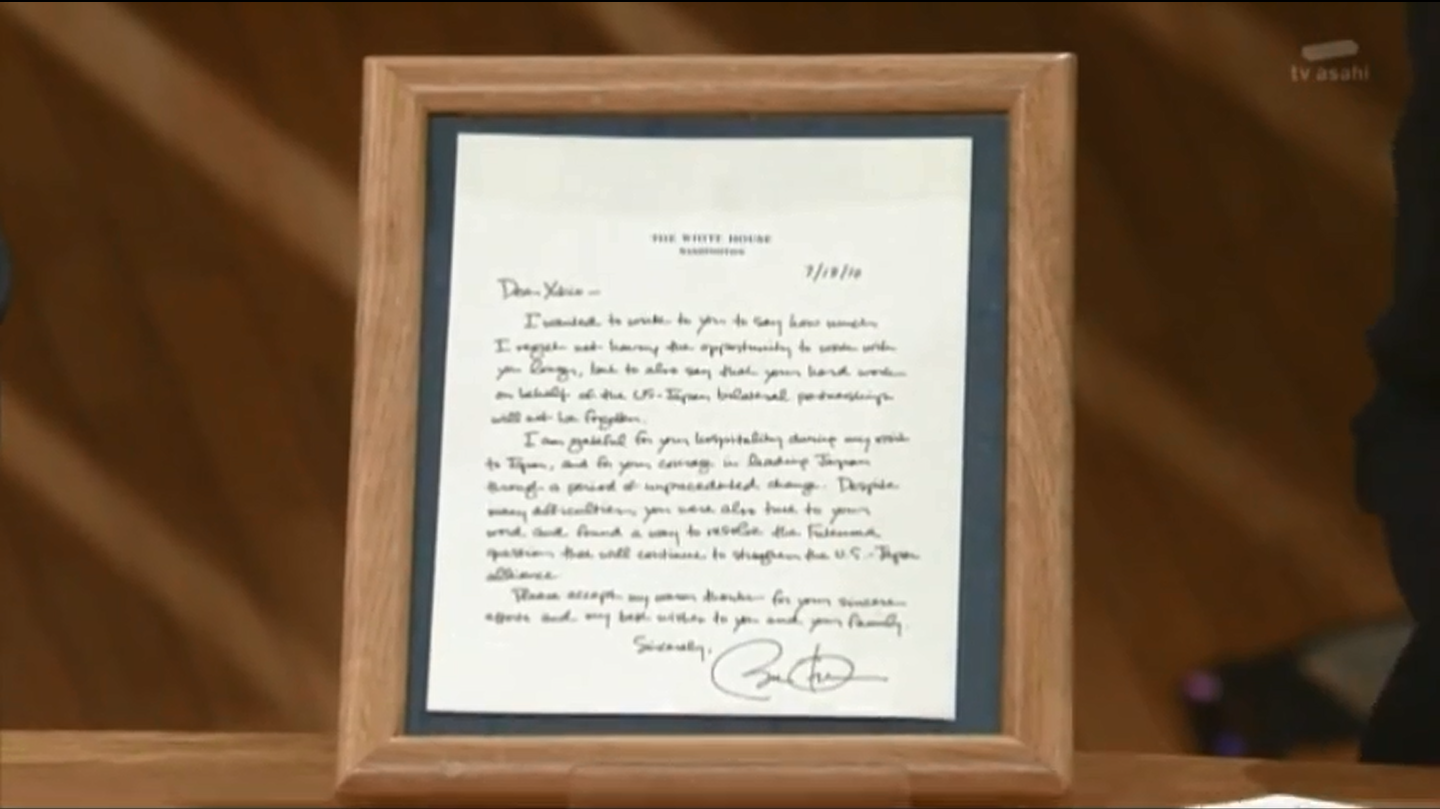 tv asahi
THE WHITE HOUSE
WASHINGTON
7/18/10
Dear Yukio —
I wanted to write to you to say how much
I regret not having the opportunity to work with
you longer, but to also say that your hard work
on behalf of the US-Japan bilateral partnerships
will not be forgotten.
I am grateful for your hospitality during my visit
to Japan, and for your courage in leading Japan
through a period of unprecedented change. Despite
many difficulties, you were also true to your
word and found a way to resolve the Futenma
question that will continue to strengthen the U.S.-Japan
alliance.
Please accept my warm thanks for your sincere
efforts and my best wishes to you and your family.
Sincerely,